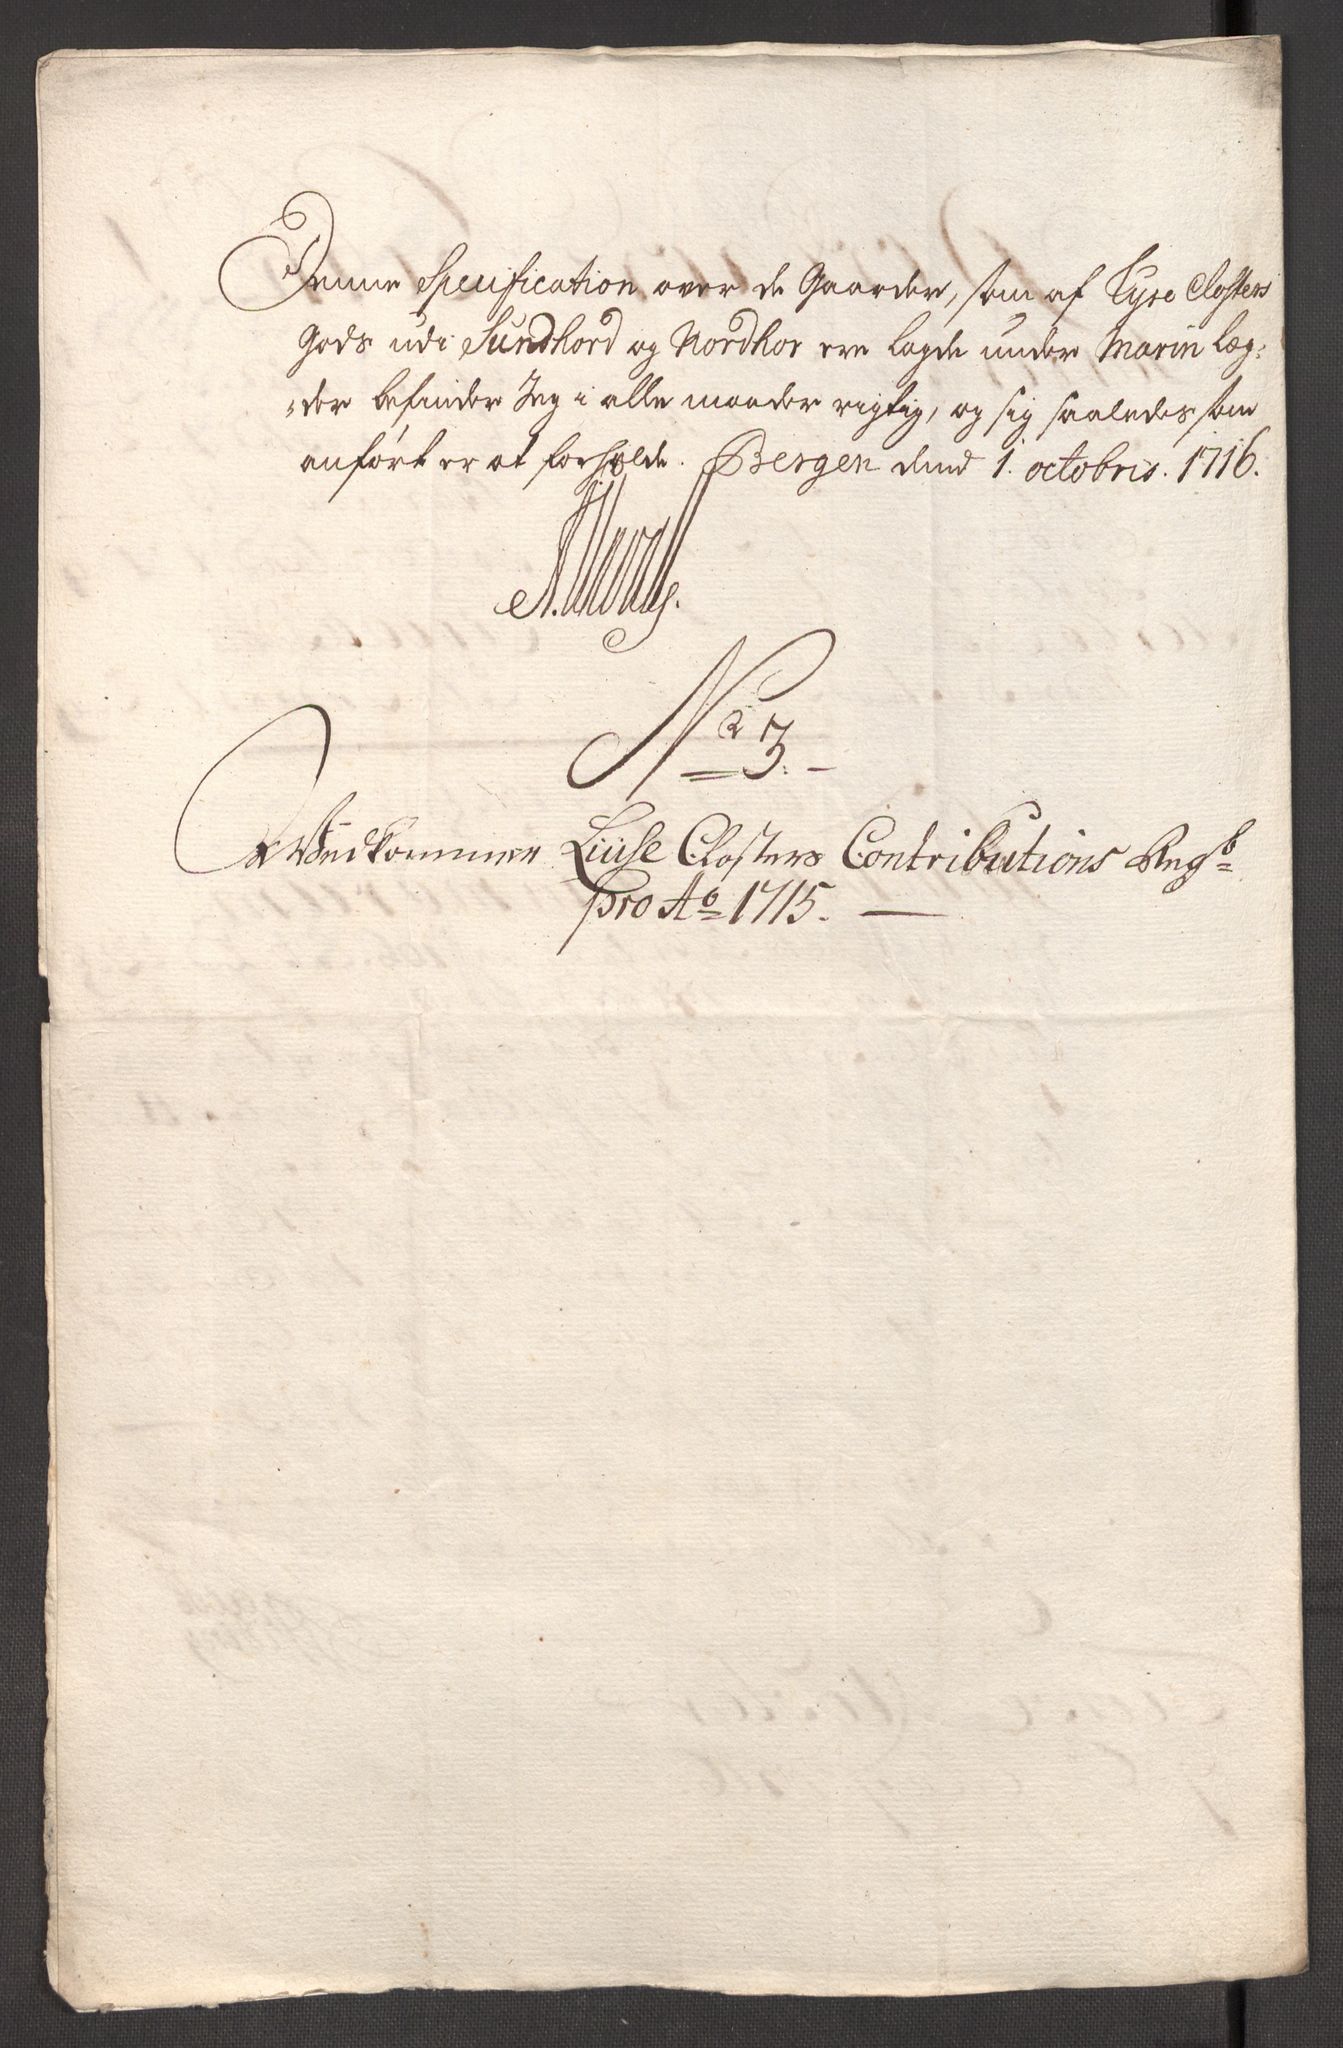 Denne Specification over de Gaarder, som af Lyse Closters
Gods udi Sundhord og Nordhor ere lagde under Marin læg-
-der befinder Jeg i alle maader rigtig, og sig saaledes som
anført er at forholde. Bergen dend 1. octobris. 1716.
No 3.
Vedkommer Lüse Closters Contributions Regb
pro Ao 1715.